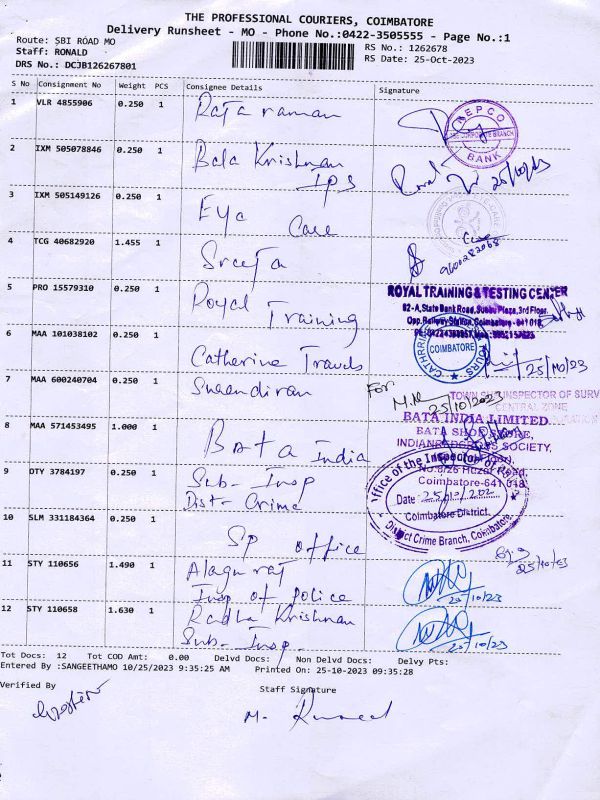 THE PROFESSIONAL COURIERS, COIMBATORE
Delivery Runsheet - MO - Phone No.:0422-3505555 - Page No.:1
Route: SBI ROAD MO
RS No.: 1262678
Staff: RONALD
RS Date: 25-Oct-2023
DRS No.: DCJB126267801
S No Consignment No Weight PCS Consignee Details Signature
1 VLR 4855906 0.250 1 Raja raman
REPCO
BANK
2 IXM 505078846 0.250 1 Bala Krishnan
IPS
25/10/23
3 IXM 505149126 0.250 1 Eye Care
9600282068
4 TCG 40682920 1.455 1 Sreeja
5 PRO 15579310 0.250 1 Royal Training
ROYAL TRAINING & TESTING CENTER
62-A, State Bank Road, Subbu Plaza, 3rd Floor,
Opp. Railway Station, Coimbatore - 641 018,
6 MAA 101038102 0.250 1 Catherine Travels
COIMBATORE
25/10/23
7 MAA 600240704 0.250 1 Surendiran
For
25/10/2023
TOWN INSPECTOR OF SURV
CENTRAL ZONE
8 MAA 571453495 1.000 1 Bata India
BATA INDIA LIMITED
BATA SHOE STORE,
INDIAN REDCROSS SOCIETY,
Coimbatore-641 018
9 OTY 3784197 0.250 1 Sub-Insp
Dist-Crime
Office of the Inspector of
Date: 25/10/202
Coimbatore District.
District Crime Branch, Coimbatore.
10 SLM 331184364 0.250 1 SP office
25/10/23
11 STY 110656 1.490 1 Alagu raj
Insp of Police
25/10/23
12 STY 110658 1.630 1 Radha Krishnan
Sub-Insp
25/10/23
Tot Docs: 12 Tot COD Amt: 0.00 Delvd Docs: Non Delvd Docs: Delvy Pts:
Entered By :SANGEETHAMO 10/25/2023 9:35:25 AM Printed On: 25-10-2023 09:35:28
Verified By
Staff Signature